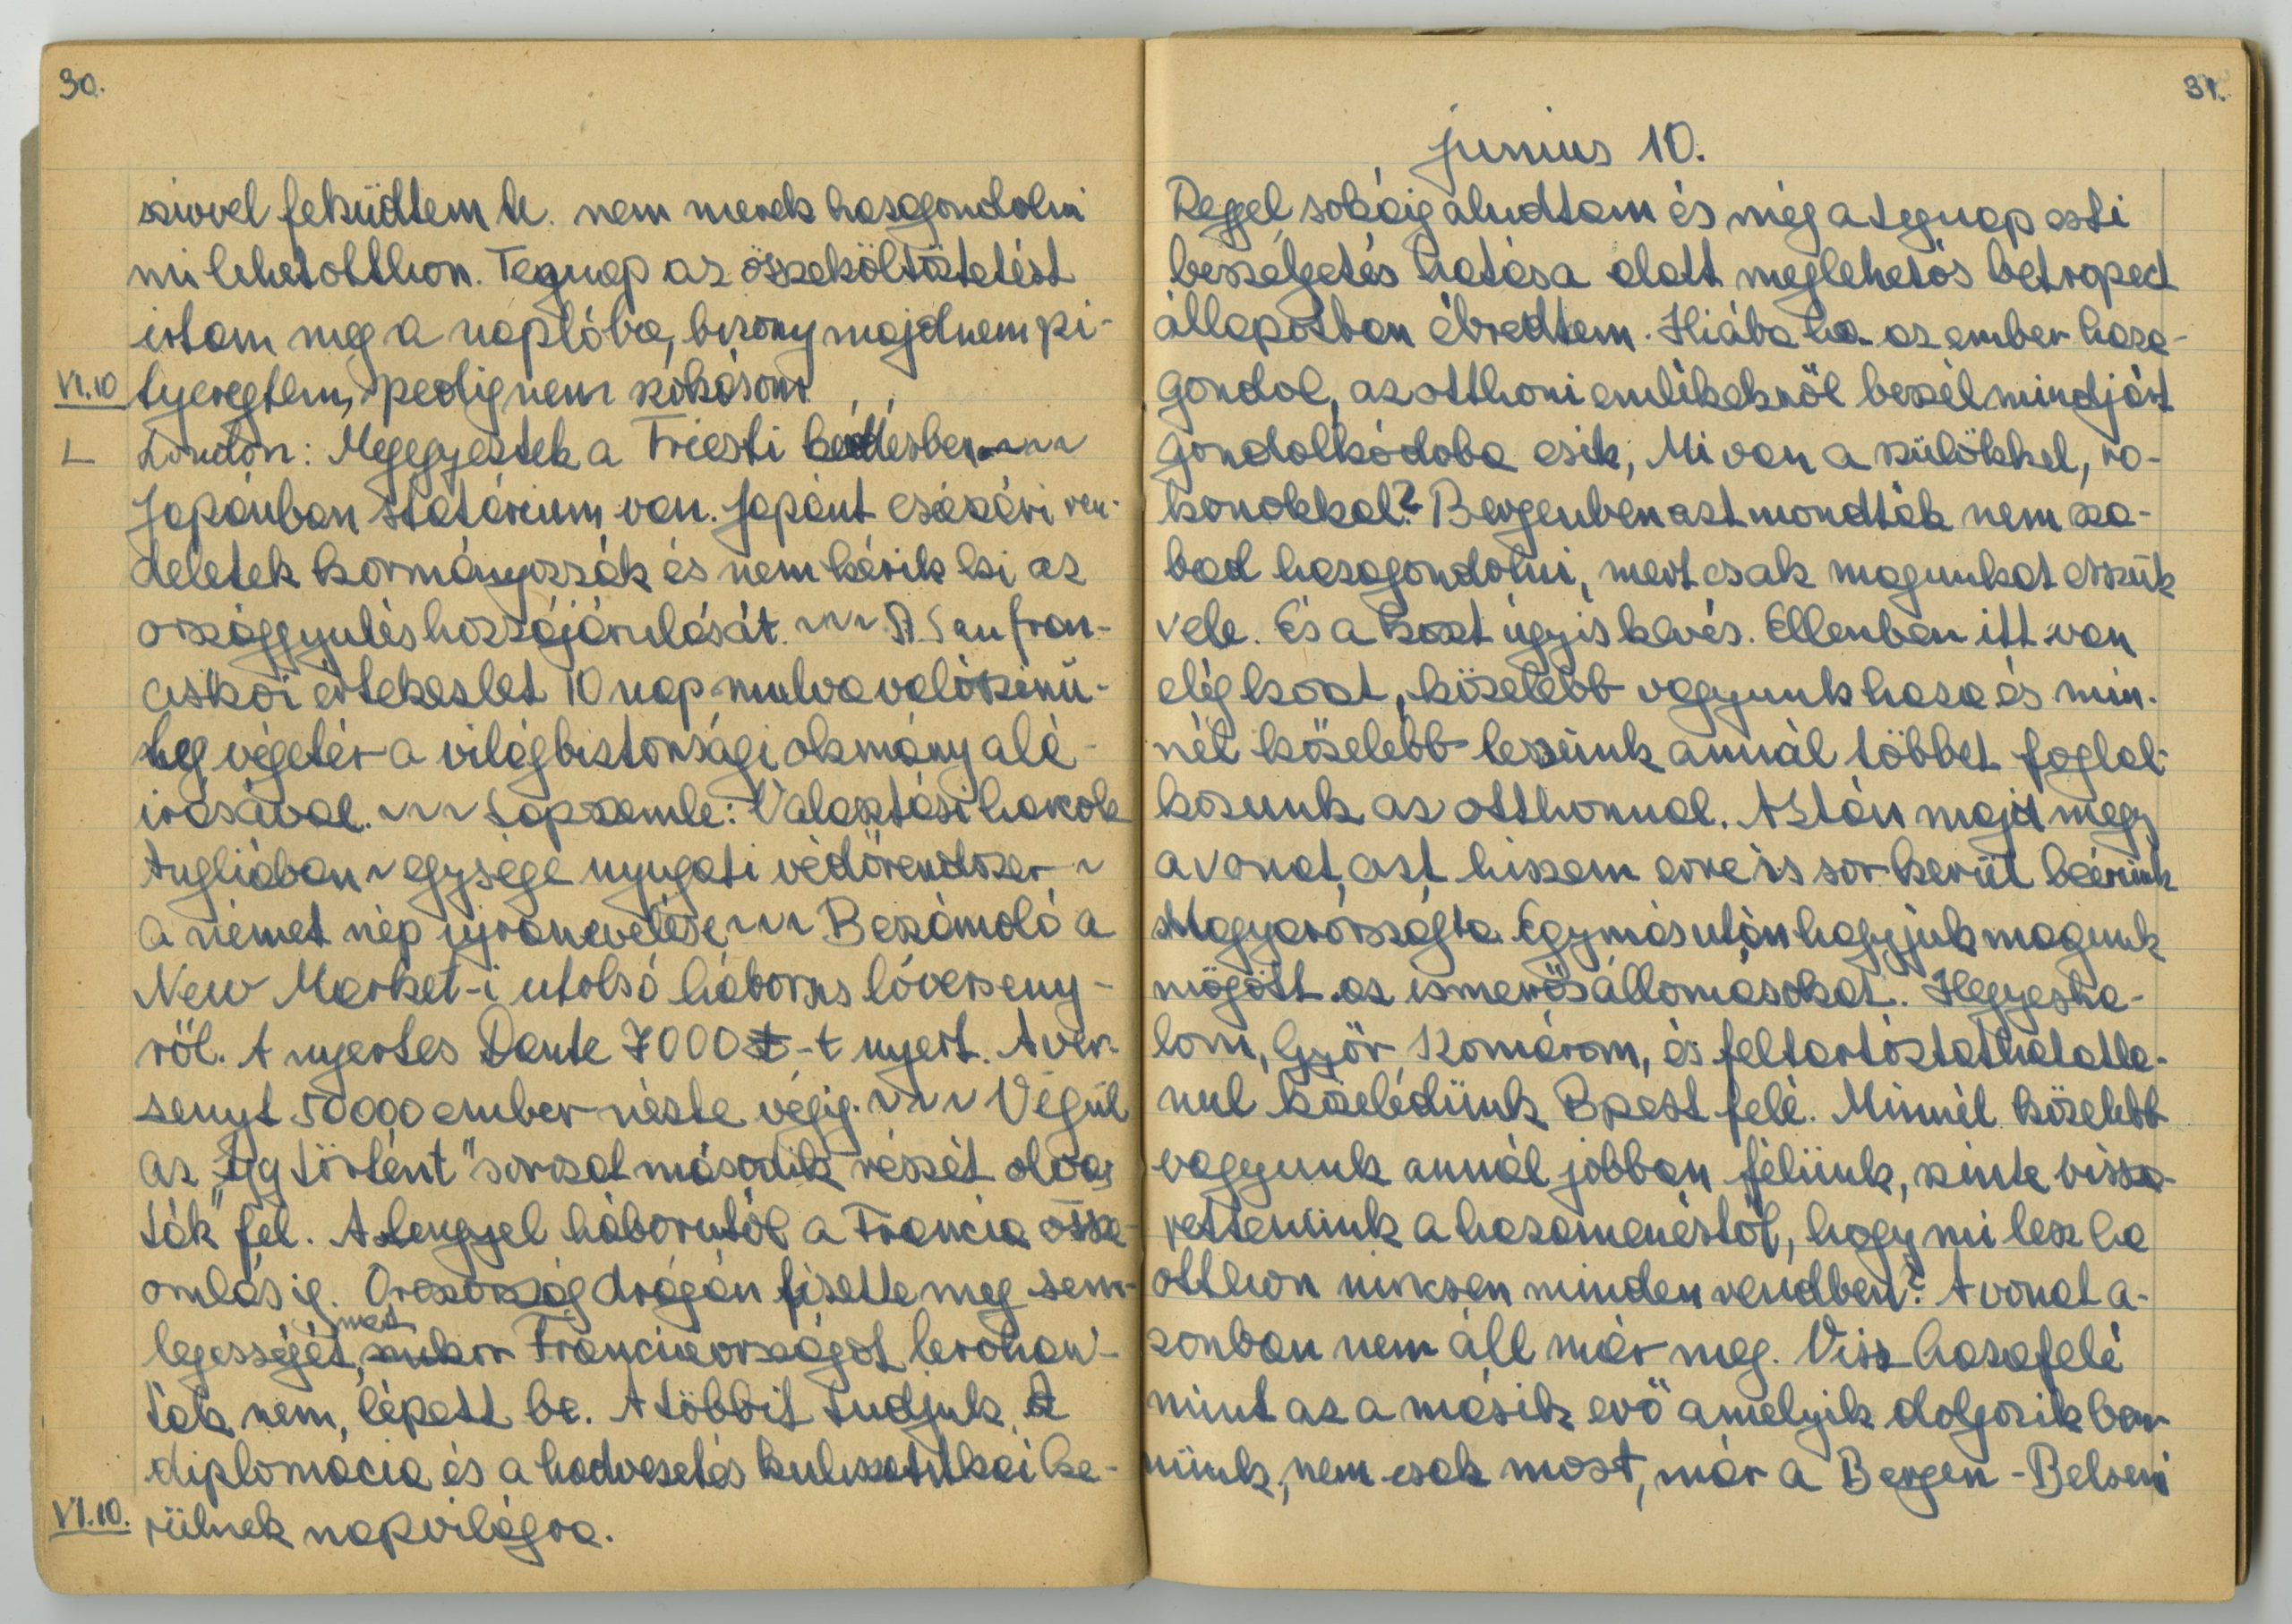 30.
szivvel feküdtem le. nem merek hazagondolni
mi lehet otthon. Tegnap az összeköltöztetést
irtam meg a naplóba, bizony majdnem pi-
VI.10 tyeregtem, pedig nem szokásom
L London: Megegyeztek a Triesti kérdésben ~~~
Japánban statárium van. Japánt császári ren-
deletek kormányozzák és nem kérik ki az
országgyulés hozzájárulását. ~~~ A San fran-
ciskói értekezlet 10 nap mulva valószinü-
leg végetér a világbiztonsági okmány alá-
irásával. ~~~ Lapszemle: Választási harcok
Angliában ~ egysége nyugati védőrendszer ~
a német nép ujranevelése ~~~ Beszámoló a
New Market-i utolsó háborus lóverseny-
ről. A nyertes Dante 7000 £-t nyert. A ver-
senyt 50000 ember nézte végig. ~~~ Végül
az „Igy történt" sorozat második részét olvas
ták fel. A lengyel háborutól a Francia össze-
omlásig. Oroszország drágán fizette meg sem-
legességét, mert mikor Franciaországot lerohan-
ták nem lépett be. A többit tudjuk, a
diplomácia és a hadvezetés kulisszatitkai ke-
VI.10. rülnek napvilágra.
31.
junius 10.
Reggel sokáig aludtam és még a tegnap esti
beszélgetés hatása alatt meglehetős betropezt
állapotban ébredtem. Hiába ha az ember haza-
gondol, az otthoni emlékekről beszél mindjárt
gondolkódoba esik, Mi van a szülőkkel, ro-
konokkal? Bergenben azt mondták nem sza-
bad hazagondolni, mert csak magunkat esszük
vele. És a koszt úgyis kevés. Ellenben itt van
elég koszt, közelebb vagyunk haza és min-
nél közelebb leszünk annál többet foglal-
kozunk az otthonnal. Aztán majd megy
a vonat, azt hiszem erre is sor kerül beérünk
Magyarországra. Egymásután hagyjuk magunk
mögött az ismerős állomásokat. Hegyesha-
lom, Győr, Komárom, és feltartóztathatatla-
nul közeledünk Bpest felé. Minnél közelebb
vagyunk annál jobban félünk, szinte vissza-
rettenünk a hazamenéstől, hogy mi lesz ha
otthon nincsen minden rendben? A vonat a-
zonban nem áll már meg. Visz hazafelé
mint az a másik erő amelyik dolgozik ben-
nünk, nem csak most, már a Bergen-Belseni